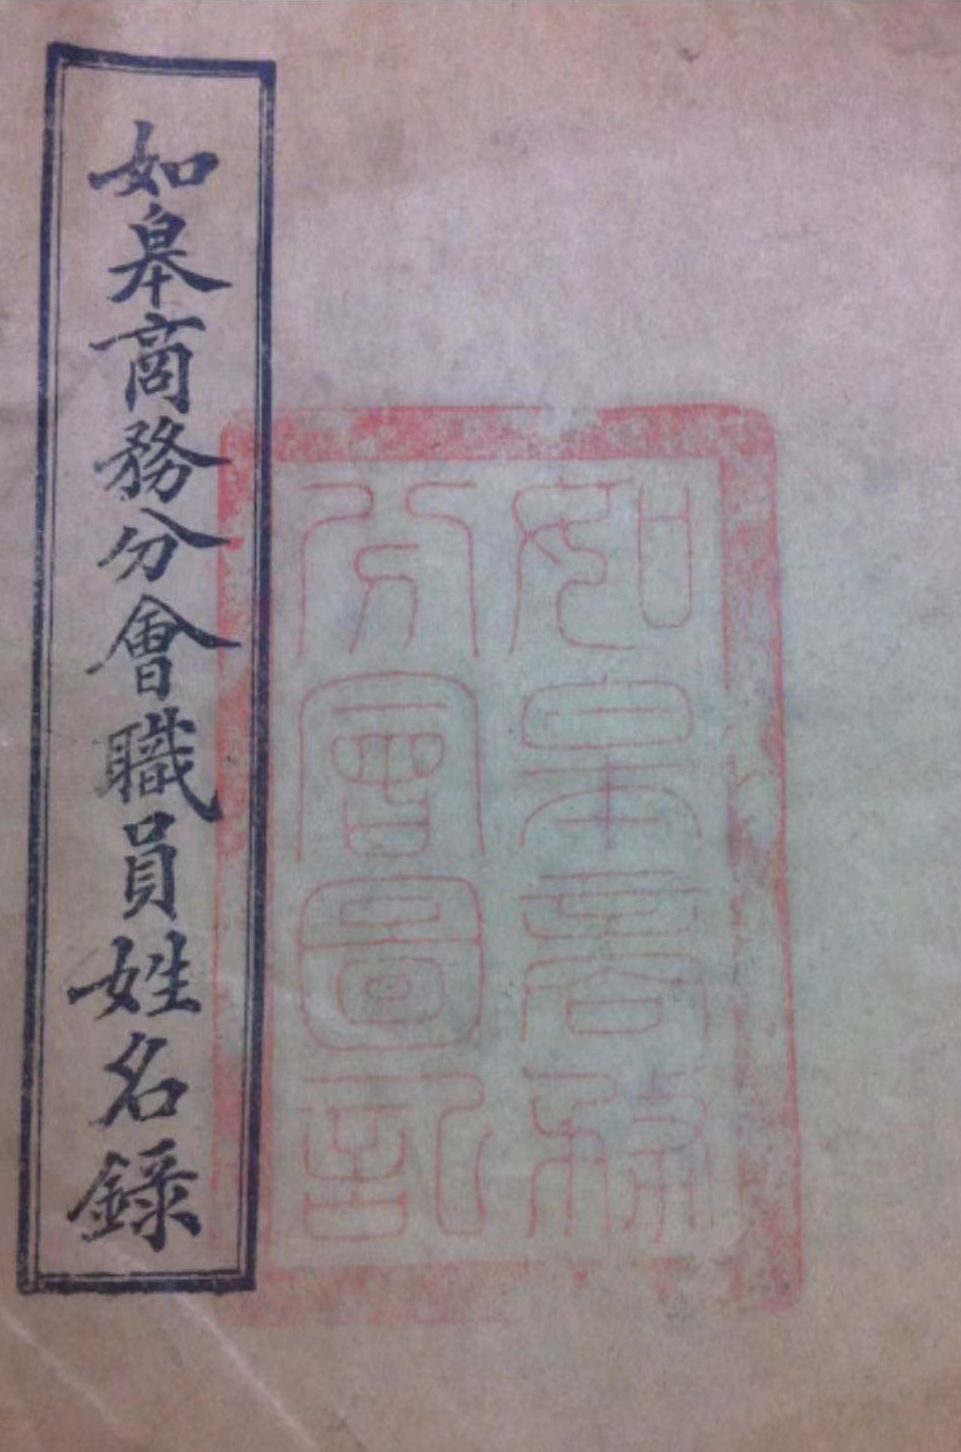 如皋商務分會職員姓名錄
如皋商務
分會圖記